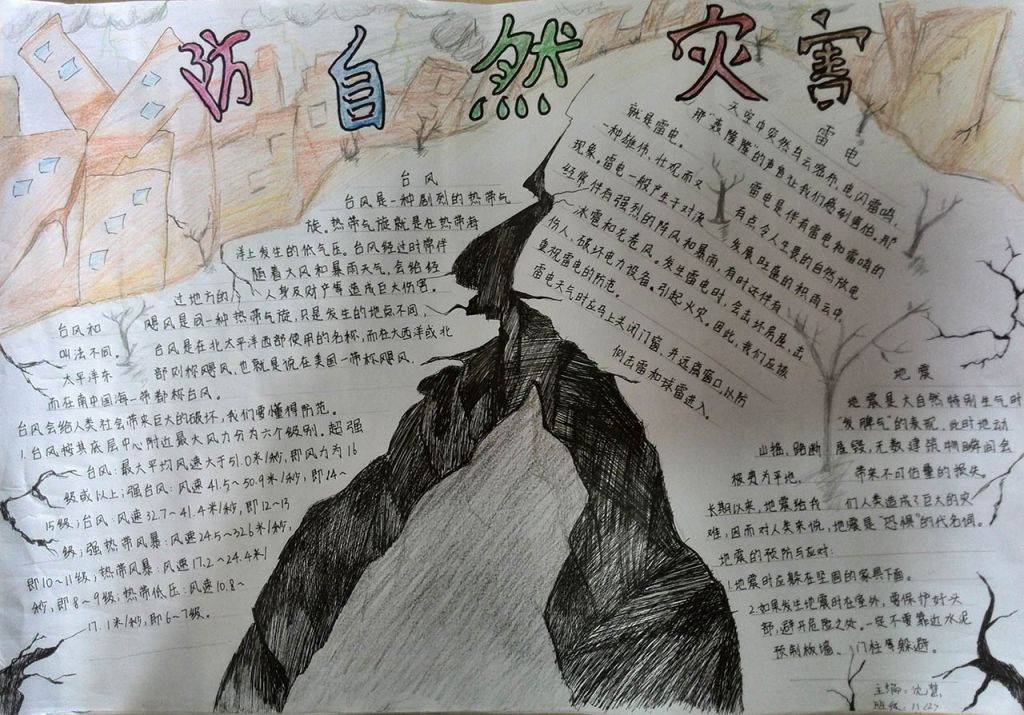 防自然灾害
台风
台风是一种剧烈的热带气
旋,热带气旋就是在热带海
洋上发生的低气压。台风经过时常伴
随着大风和暴雨天气,会给经
过地方的人身及财产等造成巨大伤害。
台风和飓风是同一种热带气旋,只是发生的地点不同,
叫法不同。台风是在北太平洋西部使用的名称,而在大西洋或北
太平洋东部则称飓风,也就是说在美国一带称飓风,
而在南中国海一带都称台风。
台风会给人类社会带来巨大的破坏,我们要懂得防范。
1.台风按其底层中心附近最大风力分为六个级别。超强
台风:最大平均风速大于51.0米/秒,即风力为16
级或以上;强台风:风速41.5~50.9米/秒,即14~
15级;台风:风速32.7~41.4米/秒,即12~13
级;强热带风暴:风速24.5~32.6米/秒,
即10~11级;热带风暴:风速17.2~24.4米/
秒,即8~9级;热带低压:风速10.8~
17.1米/秒,即6~7级。
雷电
天空中突然乌云密布,电闪雷鸣,
那"轰隆隆"的声音让我们感到害怕。那
就是雷电。雷电是伴有雷电和雷鸣的
一种雄伟、壮观而又有点令人生畏的自然放电
现象。雷电一般产生于对流发展旺盛的积雨云中,
经常伴有强烈的阵风和暴雨,有时还伴有
冰雹和龙卷风。发生雷电时,会击坏房屋、击
伤人、破坏电力设备。引起火灾。因此,我们应该
重视雷电的防范。
雷电天气时应马上关闭门窗,并远离窗口,以防
侧击雷和球雷进入。
地震
地震是大自然特别生气时
"发脾气"的表现,此时地动
山摇、路断屋毁,无数建筑物瞬间会
被夷为平地。带来不可估量的损失。
长期以来,地震给我们人类造成了巨大的灾
难,因而对人类来说,地震是"恐惧"的代名词。
地震的预防与应对:
1.地震时应躲在坚固的家具下面。
2.如果发生地震时在室外,要保护好头
部,避开危险之处。一定不要靠近水泥
预制板墙、门柱等躲避。
主编:沈慧
班级: